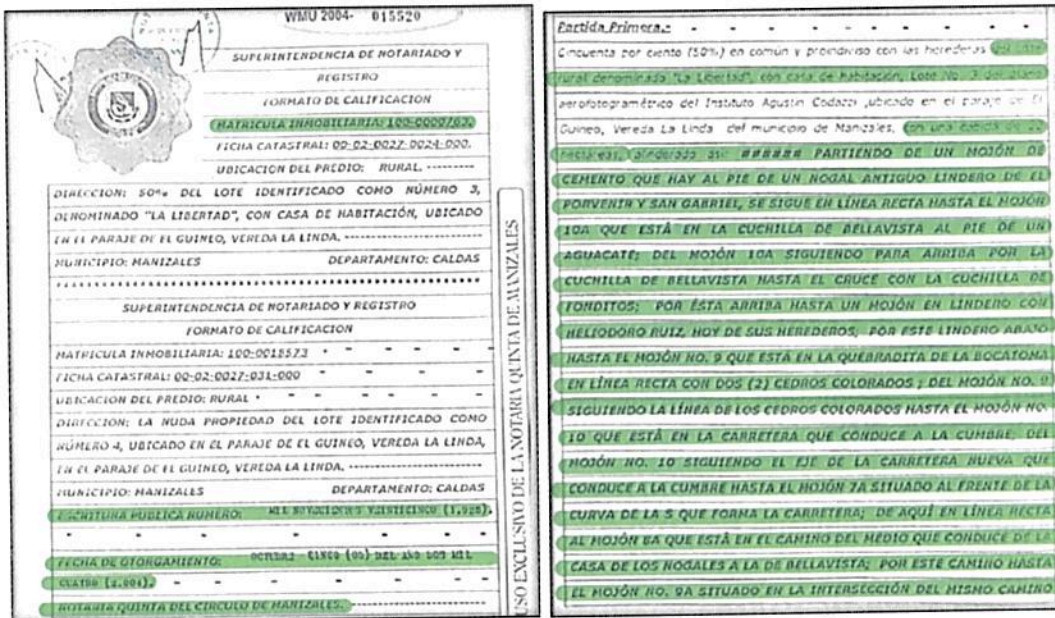 WMU 2004- 015520
SUPERINTENDENCIA DE NOTARIADO Y
REGISTRO
FORMATO DE CALIFICACION
MATRICULA INMOBILIARIA: 100-0000763.
FICHA CATASTRAL: 00-02-0027-0024-000.
UBICACION DEL PREDIO: RURAL. ---------
DIRECCION: 50% DEL LOTE IDENTIFICADO COMO NÚMERO 3,
DENOMINADO "LA LIBERTAD", CON CASA DE HABITACIÓN, UBICADO
EN EL PARAJE DE EL GUINEO, VEREDA LA LINDA. --------------------
MUNICIPIO: MANIZALES DEPARTAMENTO: CALDAS
SUPERINTENDENCIA DE NOTARIADO Y REGISTRO
FORMATO DE CALIFICACION
MATRICULA INMOBILIARIA: 100-0018573 - - - - - -
FICHA CATASTRAL: 00-02-0027-031-000 - - - - -
UBICACION DEL PREDIO: RURAL - - - - - - - -
DIRECCION: LA NUDA PROPIEDAD DEL LOTE IDENTIFICADO COMO
NÚMERO 4, UBICADO EN EL PARAJE DE EL GUINEO, VEREDA LA LINDA,
EN EL PARAJE DE EL GUINEO, VEREDA LA LINDA. --------------------
MUNICIPIO: MANIZALES DEPARTAMENTO: CALDAS
ESCRITURA PUBLICA NUMERO: MIL NOVECIENTOS VEINTICINCO (1.925).
- - - - - - - - - -
FECHA DE OTORGAMIENTO: OCTUBRE CINCO (05) DEL AÑO DOS MIL
CUATRO (2.004). - - - - - - - -
NOTARIA QUINTA DEL CIRCULO DE MANIZALES. --------------------
USO EXCLUSIVO DE LA NOTARIA QUINTA DE MANIZALES
Partida Primera.- - - - - - - - - -
Cincuenta por ciento (50%) en común y proindiviso con las herederas del lote
rural denominado "La Libertad", con casa de habitación, Lote No. 3 del plano
aerofotogramétrico del Instituto Agustin Codazzi ,ubicado en el paraje de El
Guineo, Vereda La Linda del municipio de Manizales, con una cabida de
hectáreas, alinderado así: ###### PARTIENDO DE UN MOJÓN DE
CEMENTO QUE HAY AL PIE DE UN NOGAL ANTIGUO LINDERO DE EL
PORVENIR Y SAN GABRIEL, SE SIGUE EN LÍNEA RECTA HASTA EL MOJÓN
10A QUE ESTÁ EN LA CUCHILLA DE BELLAVISTA AL PIE DE UN
AGUACATE; DEL MOJÓN 10A SIGUIENDO PARA ARRIBA POR LA
CUCHILLA DE BELLAVISTA HASTA EL CRUCE CON LA CUCHILLA DE
FONDITOS; POR ÉSTA ARRIBA HASTA UN MOJÓN EN LINDERO CON
HELIODORO RUIZ, HOY DE SUS HEREDEROS; POR ESTE LINDERO ABAJO
HASTA EL MOJÓN NO. 9 QUE ESTÁ EN LA QUEBRADITA DE LA BOCATOMA
EN LÍNEA RECTA CON DOS (2) CEDROS COLORADOS ; DEL MOJÓN NO. 9
SIGUIENDO LA LÍNEA DE LOS CEDROS COLORADOS HASTA EL MOJÓN NO.
10 QUE ESTÁ EN LA CARRETERA QUE CONDUCE A LA CUMBRE, DEL
MOJÓN NO. 10 SIGUIENDO EL EJE DE LA CARRETERA NUEVA QUE
CONDUCE A LA CUMBRE HASTA EL MOJÓN 7A SITUADO AL FRENTE DE LA
CURVA DE LA S QUE FORMA LA CARRETERA; DE AQUÍ EN LÍNEA RECTA
AL MOJÓN 8A QUE ESTÁ EN EL CAMINO DEL MEDIO QUE CONDUCE DE LA
CASA DE LOS NOGALES A LA DE BELLAVISTA; POR ESTE CAMINO HASTA
EL MOJÓN NO. 9A SITUADO EN LA INTERSECCIÓN DEL MISMO CAMINO